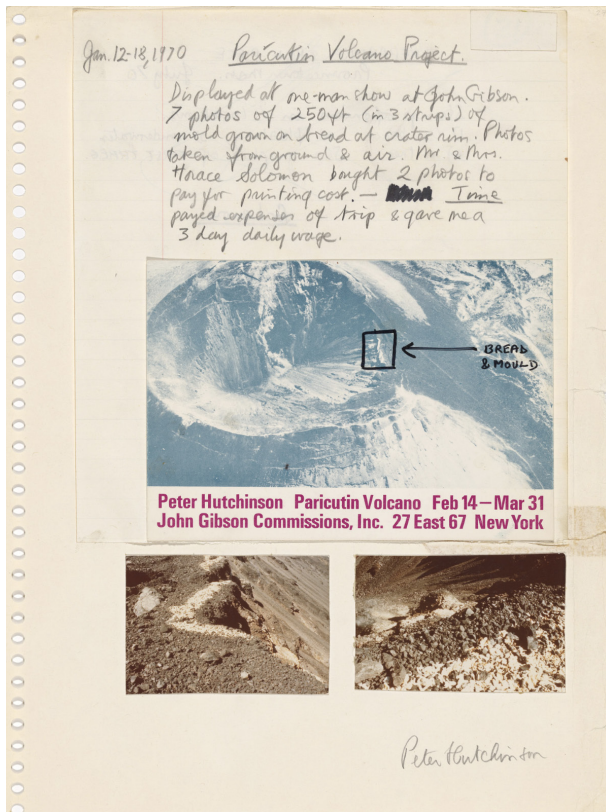 Jan. 12-18, 1970
Paricutin Volcano Project.
Displayed at one-man show at John Gibson.
7 photos of 250 ft (in 3 strips) of
mold grown on bread at crater rim. Photos
taken from ground & air. Mr. & Mrs.
Horace Solomon bought 2 photos to
pay for printing cost. — Time
payed expenses of trip & gave me a
3 day daily wage.
BREAD
& MOULD
Peter Hutchinson Paricutin Volcano Feb 14—Mar 31
John Gibson Commissions, Inc. 27 East 67 New York
Peter Hutchinson